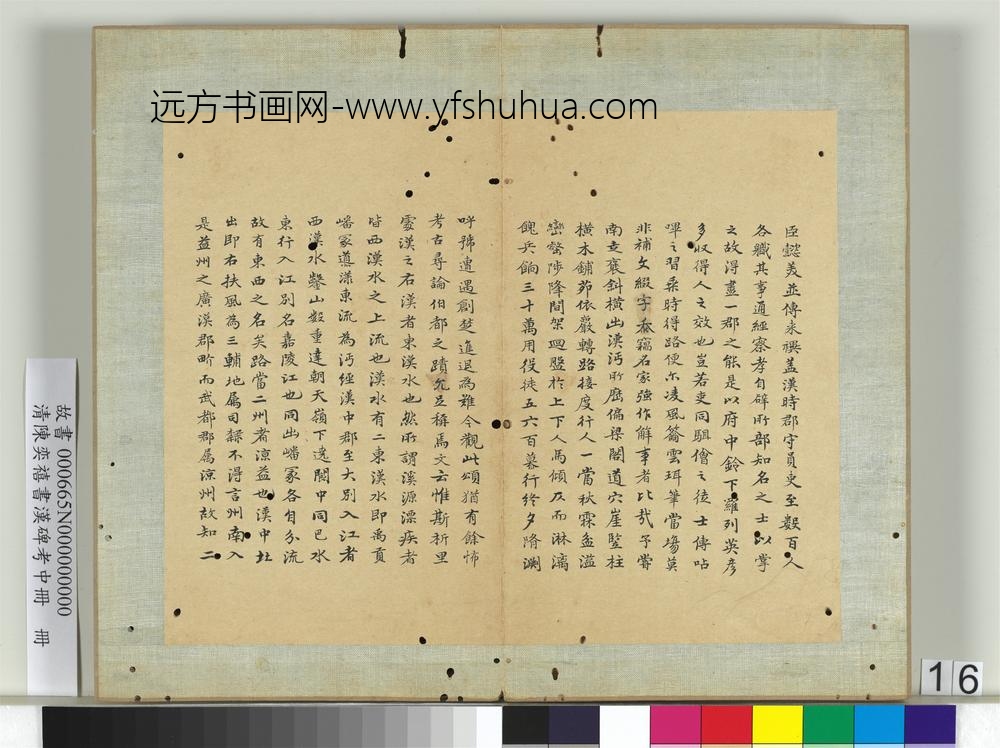 远方书画网-www.yfshuhua.com
臣懿美並傳來禩蓋漢時郡守員吏至數百人
各職其事通經察孝自辟所部知名之士以掌
之故得盡一郡之能是以府中鈴下羅列英彥
多収得人之效也豈若吏同駔儈之徒士傳呫
嗶之習乘時得路便尒凌風簪雲珥筆當塲莫
非補文綴字黍竊名家強作解事者比哉予嘗
南走褒斜橫出漢沔所歷偏梁閣道穴崖豎柱
橫木鋪茆依巖轉路接度行人一當秋霖盆溢
巒盤陟降間架迴盤於上下人馬傾仄而淋漓
餽兵餉三十萬用役徒五六百暮行終夕隋淵
呼號遭遇創楚進退為難今觀此頌猶有餘怖
考古尋論伯都之蹟允足稱焉文云惟斯析里
處漢之右漢者東漢水也然所謂溪源漂疾者
皆西漢水之上流也漢水有二東漢水即禹貢
嶓冢導漾東流為沔經漢中郡至大別入江者
西漢水鑿山數重達朝天嶺下逸閬中同巴水
東行入江別名嘉陵江也同出嶓冢各自分流
故有東西之名矣路當二州者涼益也漢中北
出即右扶風為三輔地屬司隸不得言州南入
是益州之廣漢郡畍而武都郡屬涼州故知二
故書 000665N000000000
清陳奕禧書漢碑考中冊 冊
16